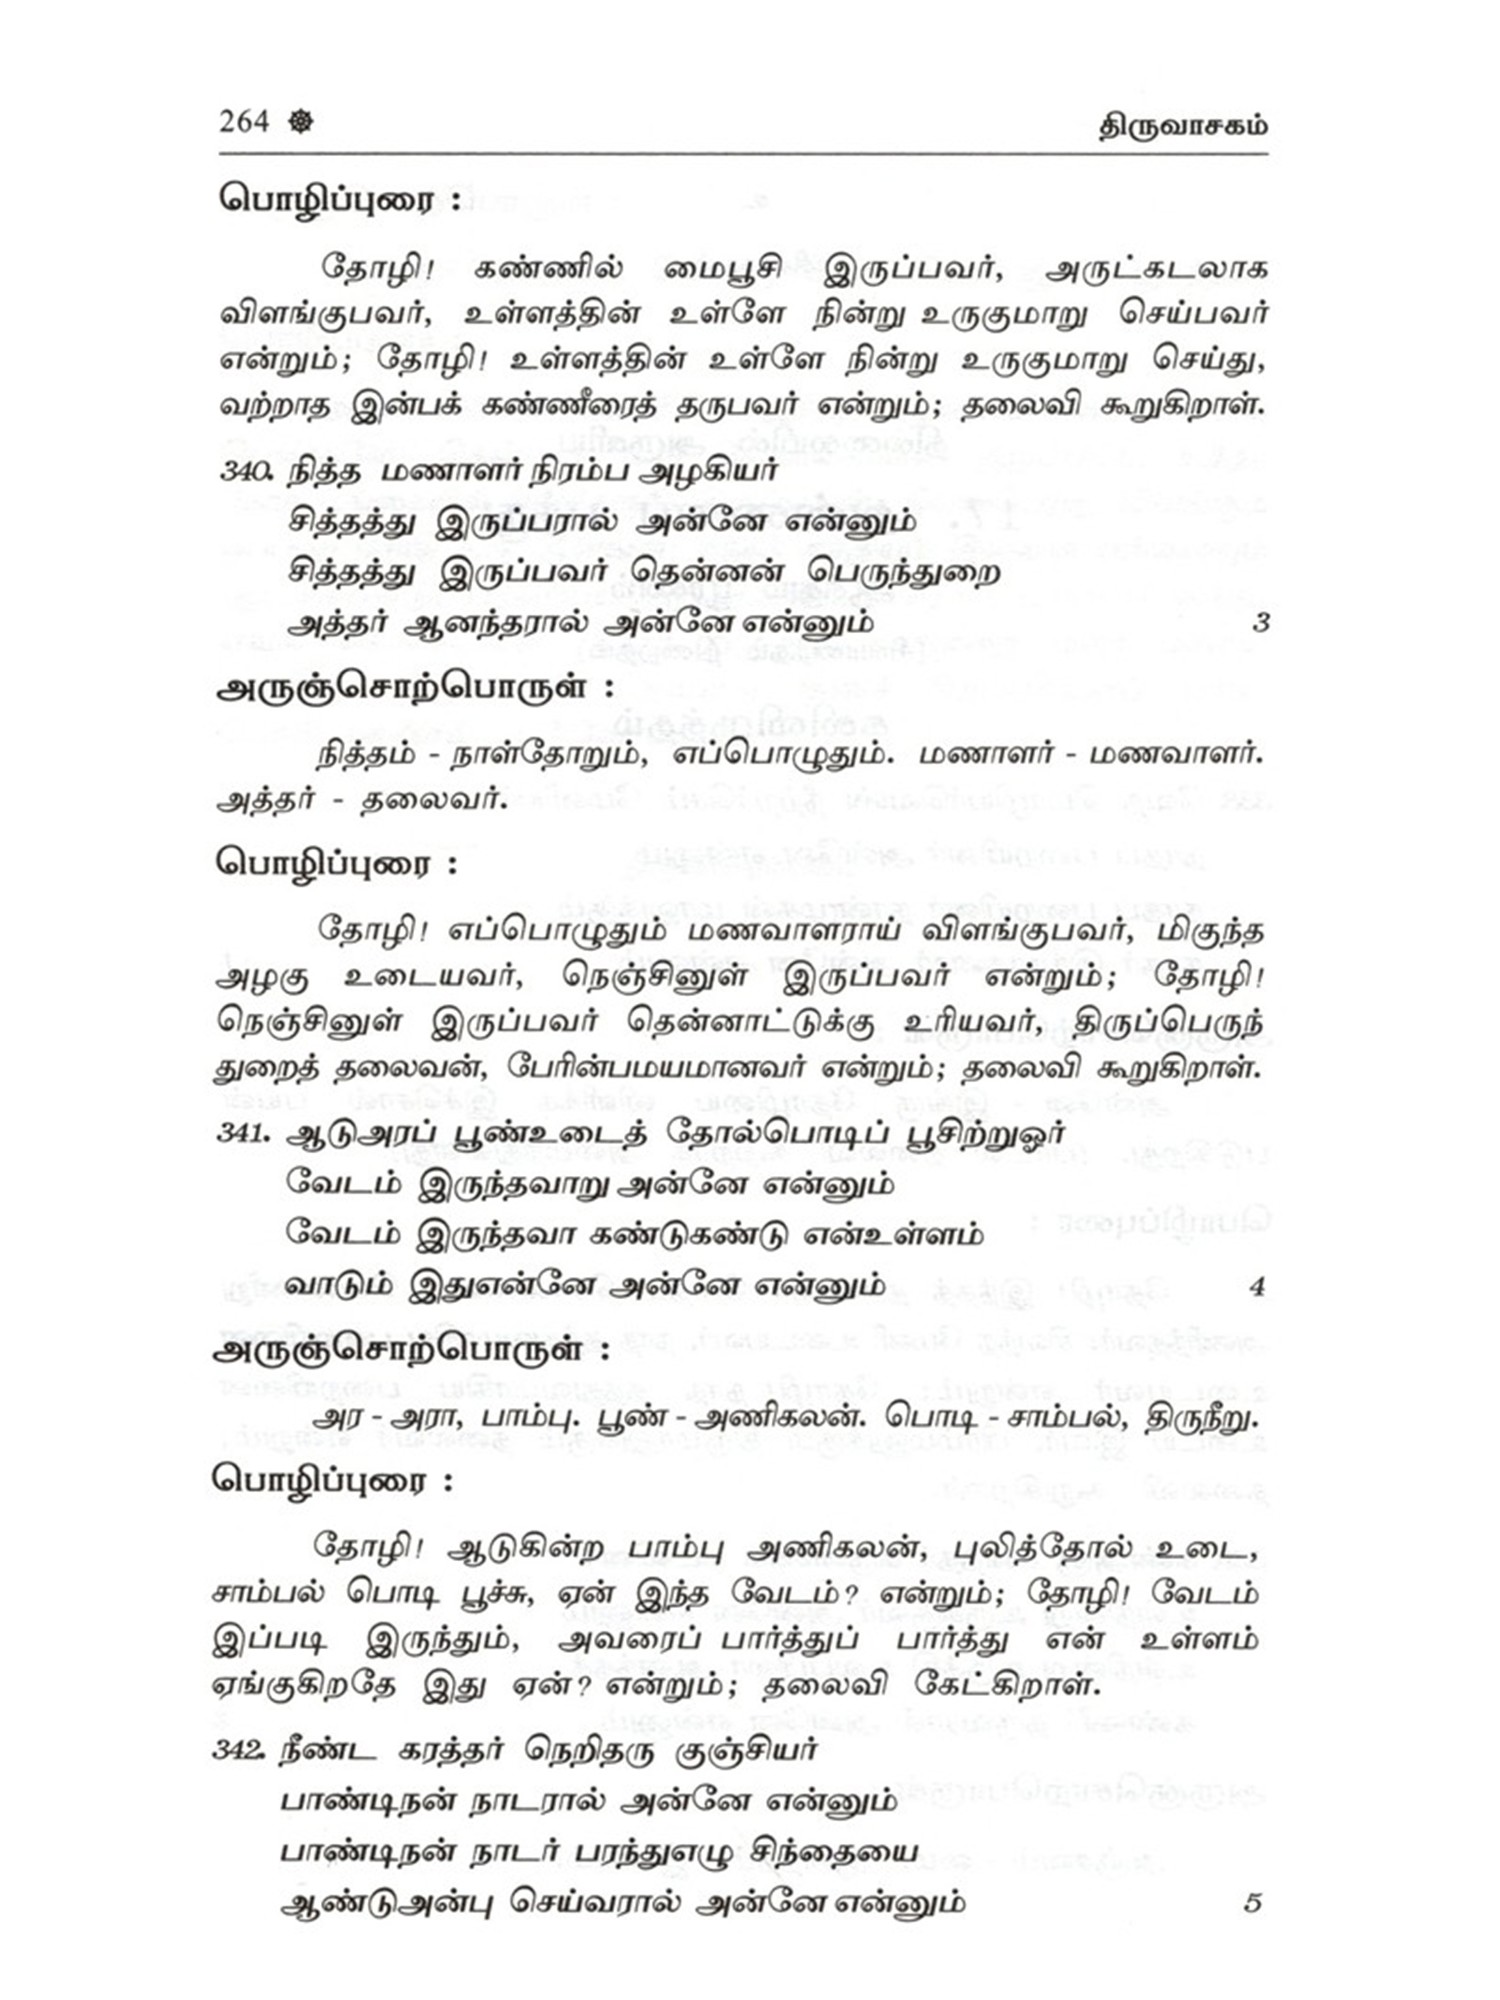 264 ☸ திருவாசகம்
பொழிப்புரை :
தோழி! கண்ணில் மைபூசி இருப்பவர், அருட்கடலாக
விளங்குபவர், உள்ளத்தின் உள்ளே நின்று உருகுமாறு செய்பவர்
என்றும்; தோழி! உள்ளத்தின் உள்ளே நின்று உருகுமாறு செய்து,
வற்றாத இன்பக் கண்ணீரைத் தருபவர் என்றும்; தலைவி கூறுகிறாள்.
340. நித்த மணாளர் நிரம்ப அழகியர்
சித்தத்து இருப்பரால் அன்னே என்னும்
சித்தத்து இருப்பவர் தென்னன் பெருந்துறை
அத்தர் ஆனந்தரால் அன்னே என்னும் 3
அருஞ்சொற்பொருள் :
நித்தம் - நாள்தோறும், எப்பொழுதும். மணாளர் - மணவாளர்.
அத்தர் - தலைவர்.
பொழிப்புரை :
தோழி! எப்பொழுதும் மணவாளராய் விளங்குபவர், மிகுந்த
அழகு உடையவர், நெஞ்சினுள் இருப்பவர் என்றும்; தோழி!
நெஞ்சினுள் இருப்பவர் தென்னாட்டுக்கு உரியவர், திருப்பெருந்
துறைத் தலைவன், பேரின்பமயமானவர் என்றும்; தலைவி கூறுகிறாள்.
341. ஆடுஅரப் பூண்உடைத் தோல்பொடிப் பூசிற்றுஓர்
வேடம் இருந்தவாறு அன்னே என்னும்
வேடம் இருந்தவா கண்டுகண்டு என்உள்ளம்
வாடும் இதுஎன்னே அன்னே என்னும் 4
அருஞ்சொற்பொருள் :
அர - அரா, பாம்பு. பூண் - அணிகலன். பொடி - சாம்பல், திருநீறு.
பொழிப்புரை :
தோழி! ஆடுகின்ற பாம்பு அணிகலன், புலித்தோல் உடை,
சாம்பல் பொடி பூச்சு, ஏன் இந்த வேடம்? என்றும்; தோழி! வேடம்
இப்படி இருந்தும், அவரைப் பார்த்துப் பார்த்து என் உள்ளம்
ஏங்குகிறதே இது ஏன்? என்றும்; தலைவி கேட்கிறாள்.
342. நீண்ட கரத்தர் நெறிதரு குஞ்சியர்
பாண்டிநன் நாடரால் அன்னே என்னும்
பாண்டிநன் நாடர் பரந்துஎழு சிந்தையை
ஆண்டுஅன்பு செய்வரால் அன்னே என்னும் 5